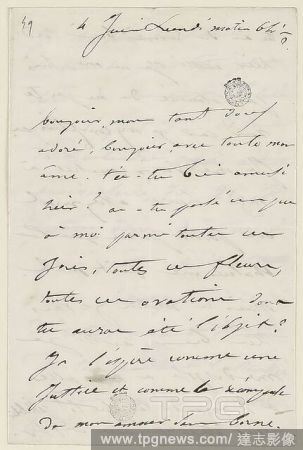 49
4 Juin Lundi matin 6h ½
Bonjour, mon tant doux
adoré, bonjour avec toute mon
âme. T'es-tu bien amusé
hier? as-tu pensé un peu
à moi parmi toutes ces
joies, toutes ces fleurs,
toutes ces ovations dont
tu auras été l'objet?
Je l'espère comme une
justice et comme la récompense
de mon amour sans borne.
TPG
www.tpgnews.com / 達志影像